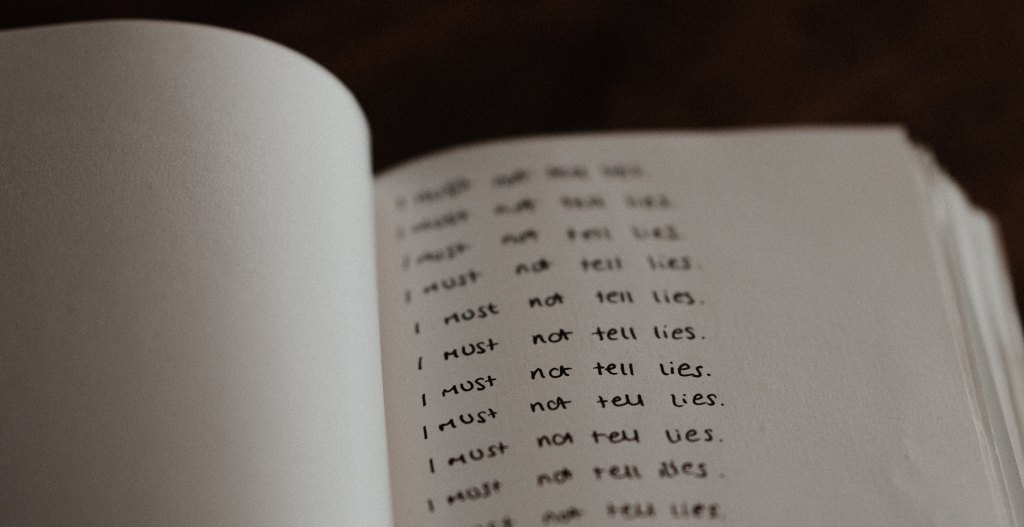 I must not tell lies.
I must not tell lies.
I must not tell lies.
I must not tell lies.
I must not tell lies.
I must not tell lies.
I must not tell lies.
I must not tell lies.
I must not tell lies.
I must not tell lies.
must not tell lies.